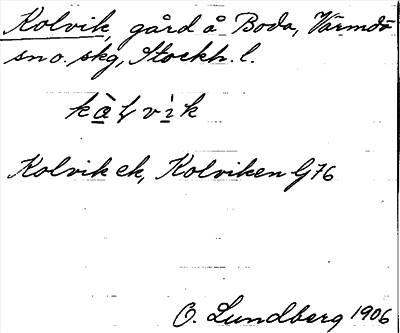 Kolvik, gård å Boda, Värmdö
sn o. skg, Stockh. l.
kὰɫvìk
Kolvik ek, Kolviken G76
O. Lundberg 1906